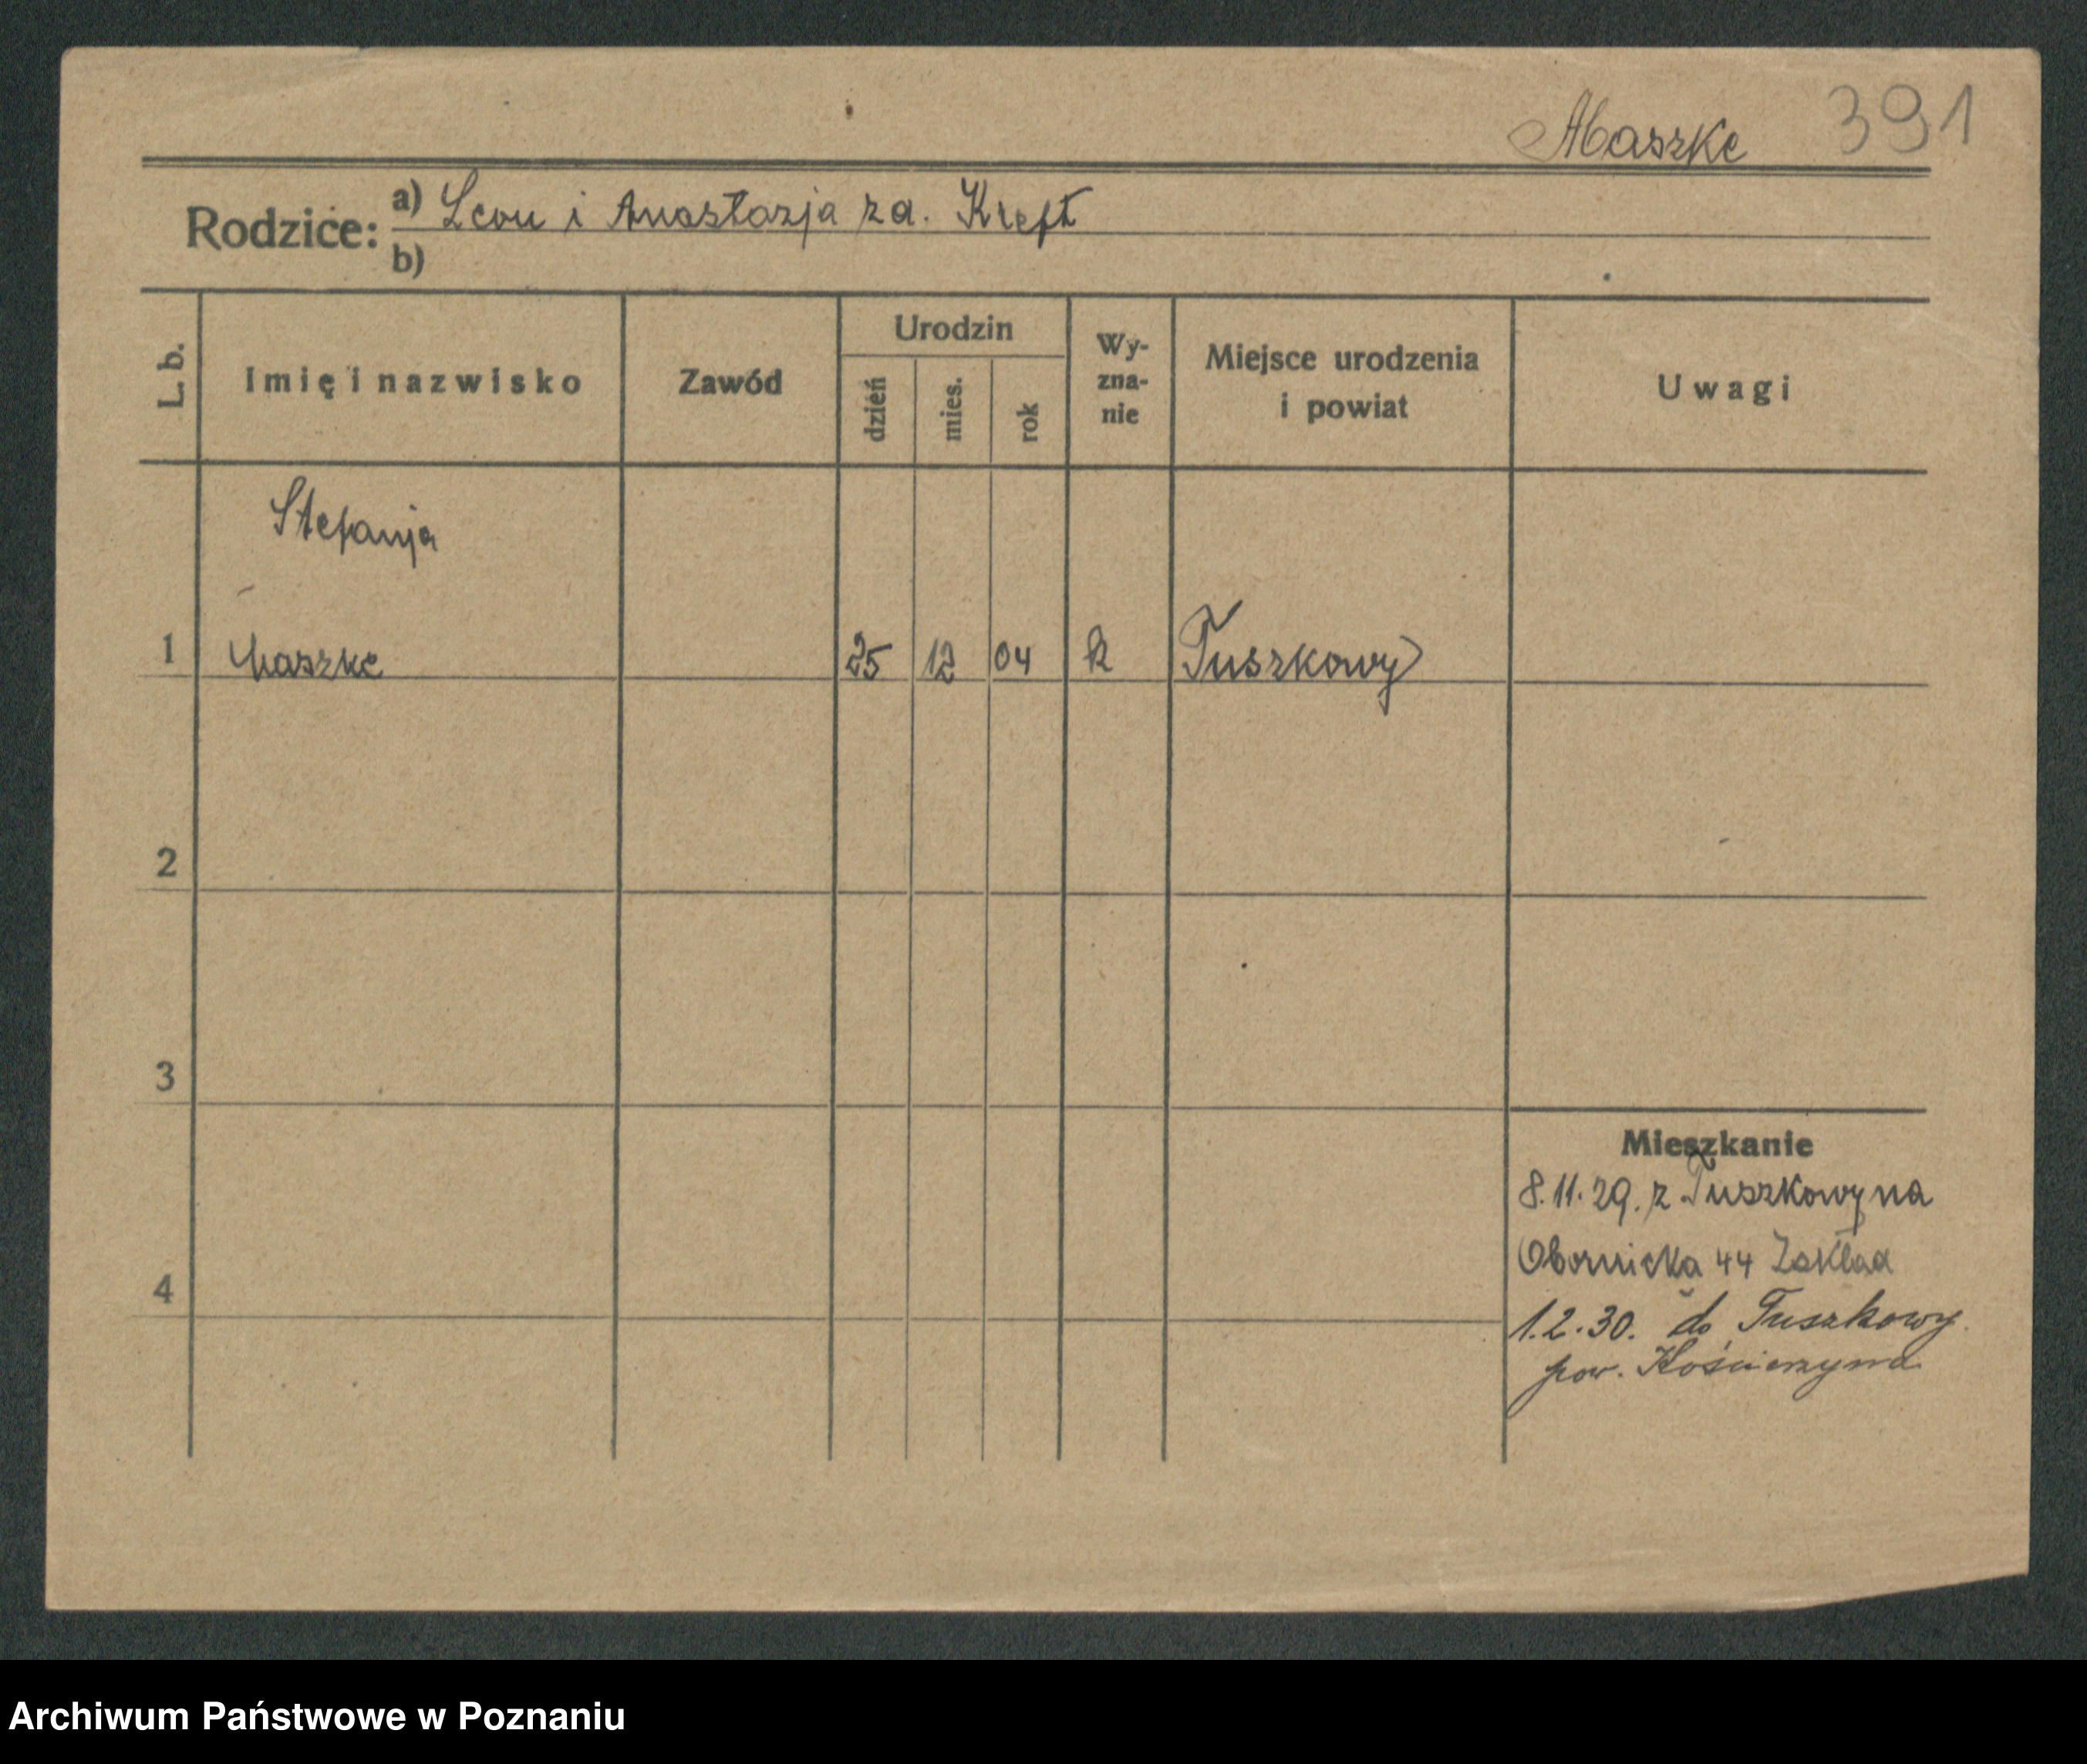 Maszke 391
Rodzice: a) Leon i Anastazja za. Kreft
b)
L. b. Imię i nazwisko Zawód Urodzin dzień mies. rok Wy-zna-nie Miejsce urodzenia i powiat Uwagi
Stefanja
1 Maszke 25 12 04 R Tuszkowy
2
3
Mieszkanie
8.11.29. z Tuszkowy na
Obornicka 44 Zakład
4
1.2.30. do Tuszkowy.
pow. Kościerzyna
Archiwum Państwowe w Poznaniu